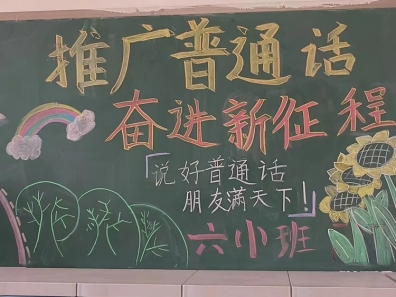 推广普通话
奋进新征程
「说好普通话
朋友满天下!」
六小班